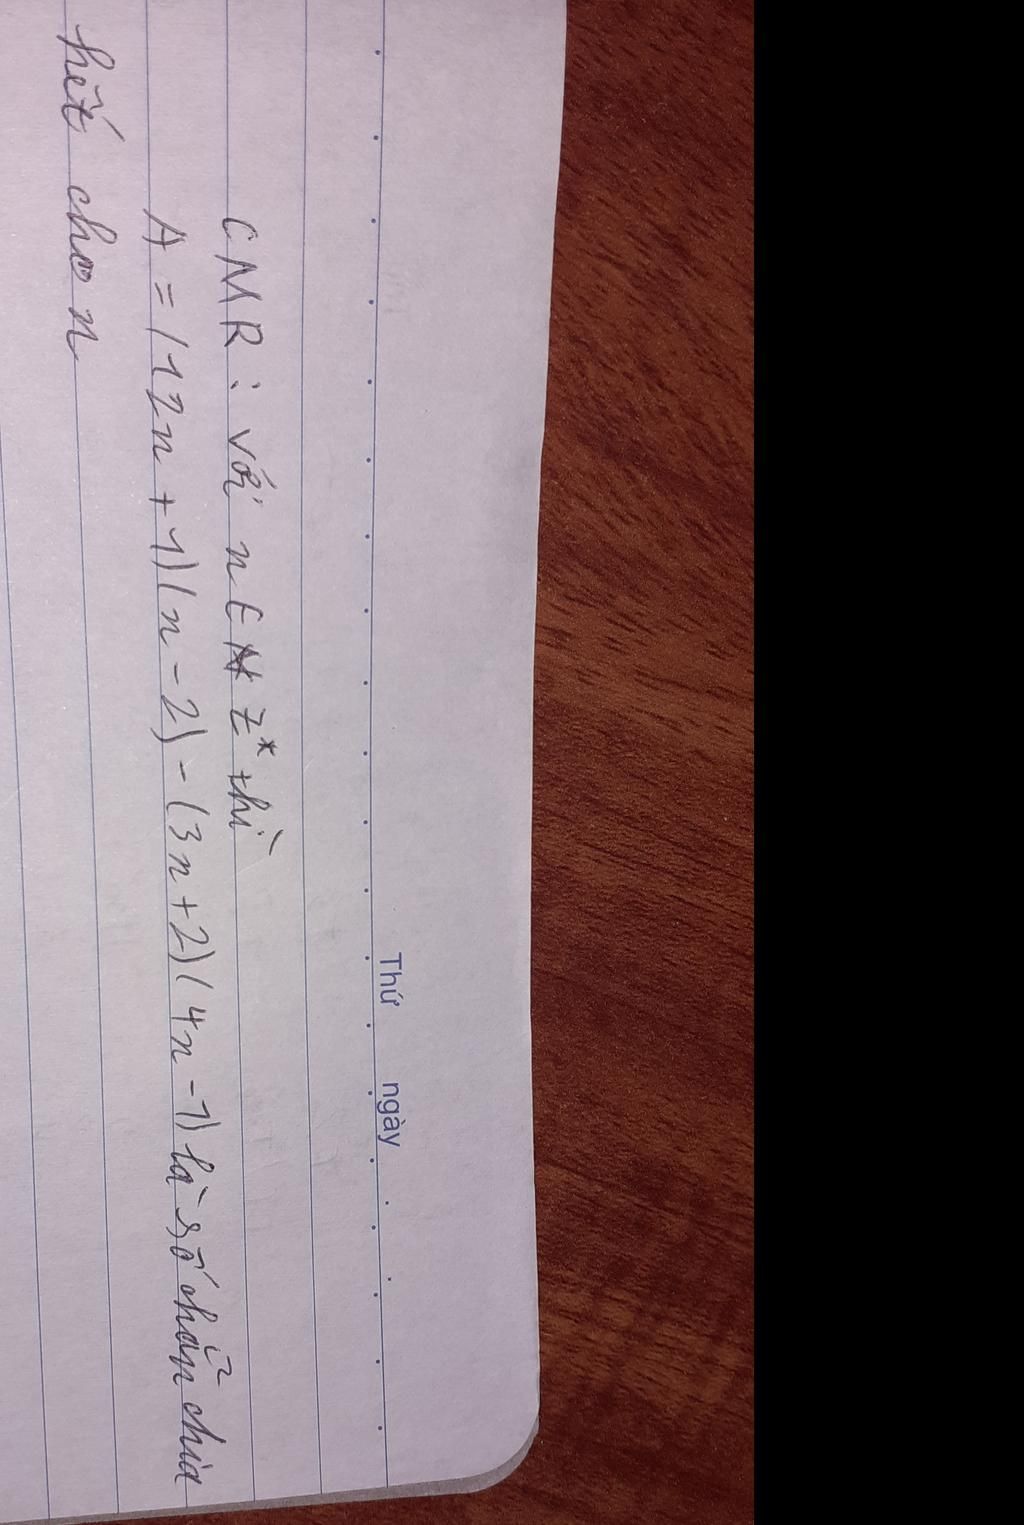 Thứ ngày
CMR: với n ∈ Z* thì
A = (12n + 1)(n - 2) - (3n + 2)(4n - 1) là số chẵn chia
hết cho n